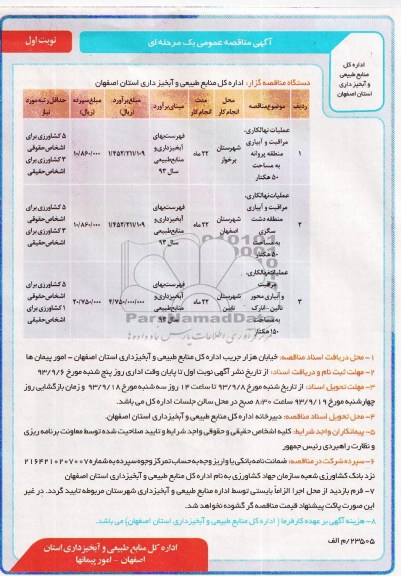 آگهی مناقصه عمومی یک مرحله ای
نوبت اول
اداره کل
منابع طبیعی
و آبخیز داری
استان اصفهان
دستگاه مناقصه گزار: اداره کل منابع طبیعی و آبخیز داری استان اصفهان
ردیف موضوع مناقصه محل انجام کار مدت انجام کار مبنای برآورد مبلغ برآورد (ریال) مبلغ سپرده (ریال) حداقل رتبه مورد نیاز
۱ عملیات نهالکاری، مراقبت و آبیاری منطقه پروانه به مساحت ۵۰ هکتار شهرستان برخوار ۲۲ ماه فهرست‌بهای آبخیزداری و منابع طبیعی سال ۹۳ ۱/۴۵۲/۲۱۱/۱۰۹ ۱۰/۸۶۰/۰۰۰ ۵ کشاورزی برای اشخاص حقوقی ۳ کشاورزی برای اشخاص حقیقی
۲ عملیات نهالکاری، مراقبت و آبیاری منطقه دشت سگزی به مساحت ۵۰ هکتار شهرستان اصفهان ۲۲ ماه فهرست‌بهای آبخیزداری و منابع طبیعی سال ۹۳ ۱/۴۵۲/۲۱۱/۱۰۹ ۱۰/۸۶۰/۰۰۰ ۵ کشاورزی برای اشخاص حقوقی ۳ کشاورزی برای اشخاص حقیقی
۳ عملیات نهالکاری، مراقبت و آبیاری محور نائین - انارک به مساحت ۱۵۰ هکتار شهرستان نایین ۲۲ ماه فهرست‌بهای آبخیزداری و منابع طبیعی سال ۹۳ ۴/۷۵۰/۰۰۰/۰۰۰ ۲۰/۷۵۰/۰۰۰ ۵ کشاورزی برای اشخاص حقوقی ۱ کشاورزی برای اشخاص حقیقی
ParsNamadData
۱- محل دریافت اسناد مناقصه: خیابان هزار جریب اداره کل منابع طبیعی و آبخیزداری استان اصفهان - امور پیمان ها
۲- مهلت ثبت نام و دریافت اسناد: از تاریخ نشر آگهی نوبت اول تا پایان وقت اداری روز پنج شنبه مورخ ۹۳/۹/۶
۳- مهلت تحویل اسناد: از تاریخ شنبه مورخ ۹۳/۹/۸ تا ساعت ۱۴ روز سه شنبه مورخ ۹۳/۹/۱۸ و زمان بازگشایی روز
چهارشنبه مورخ ۹۳/۹/۱۹ ساعت ۸:۳۰ صبح در محل سالن جلسات اداره کل می باشد.
۴- محل تحویل اسناد مناقصه: دبیرخانه اداره کل منابع طبیعی و آبخیزداری استان اصفهان.
۵- پیمانکاران واجد شرایط: کلیه اشخاص حقیقی و حقوقی واجد شرایط و تایید صلاحیت شده توسط معاونت برنامه ریزی
و نظارت راهبردی رئیس جمهور
۶- سپرده شرکت در مناقصه: ضمانت نامه بانکی یا واریز وجه به حساب تمرکز وجوه سپرده به شماره ۲۱۶۴۲۱۰۲۰۷۰۰۷
نزد بانک کشاورزی شعبه سازمان جهاد کشاورزی به نام اداره کل منابع طبیعی و آبخیزداری استان اصفهان
۷- فرم بازدید از محل اجرا الزاماً بایستی توسط اداره منابع طبیعی و آبخیزداری شهرستان مربوطه تایید گردد. در غیر
این صورت پاکت پیشنهاد قیمت مناقصه گر گشوده نخواهد شد.
۸- هزینه آگهی بر عهده کارفرما (اداره کل منابع طبیعی و آبخیزداری استان اصفهان) می باشد.
۲۳۵۰۵/م الف
اداره کل منابع طبیعی و آبخیزداری استان
اصفهان - امور پیمانها